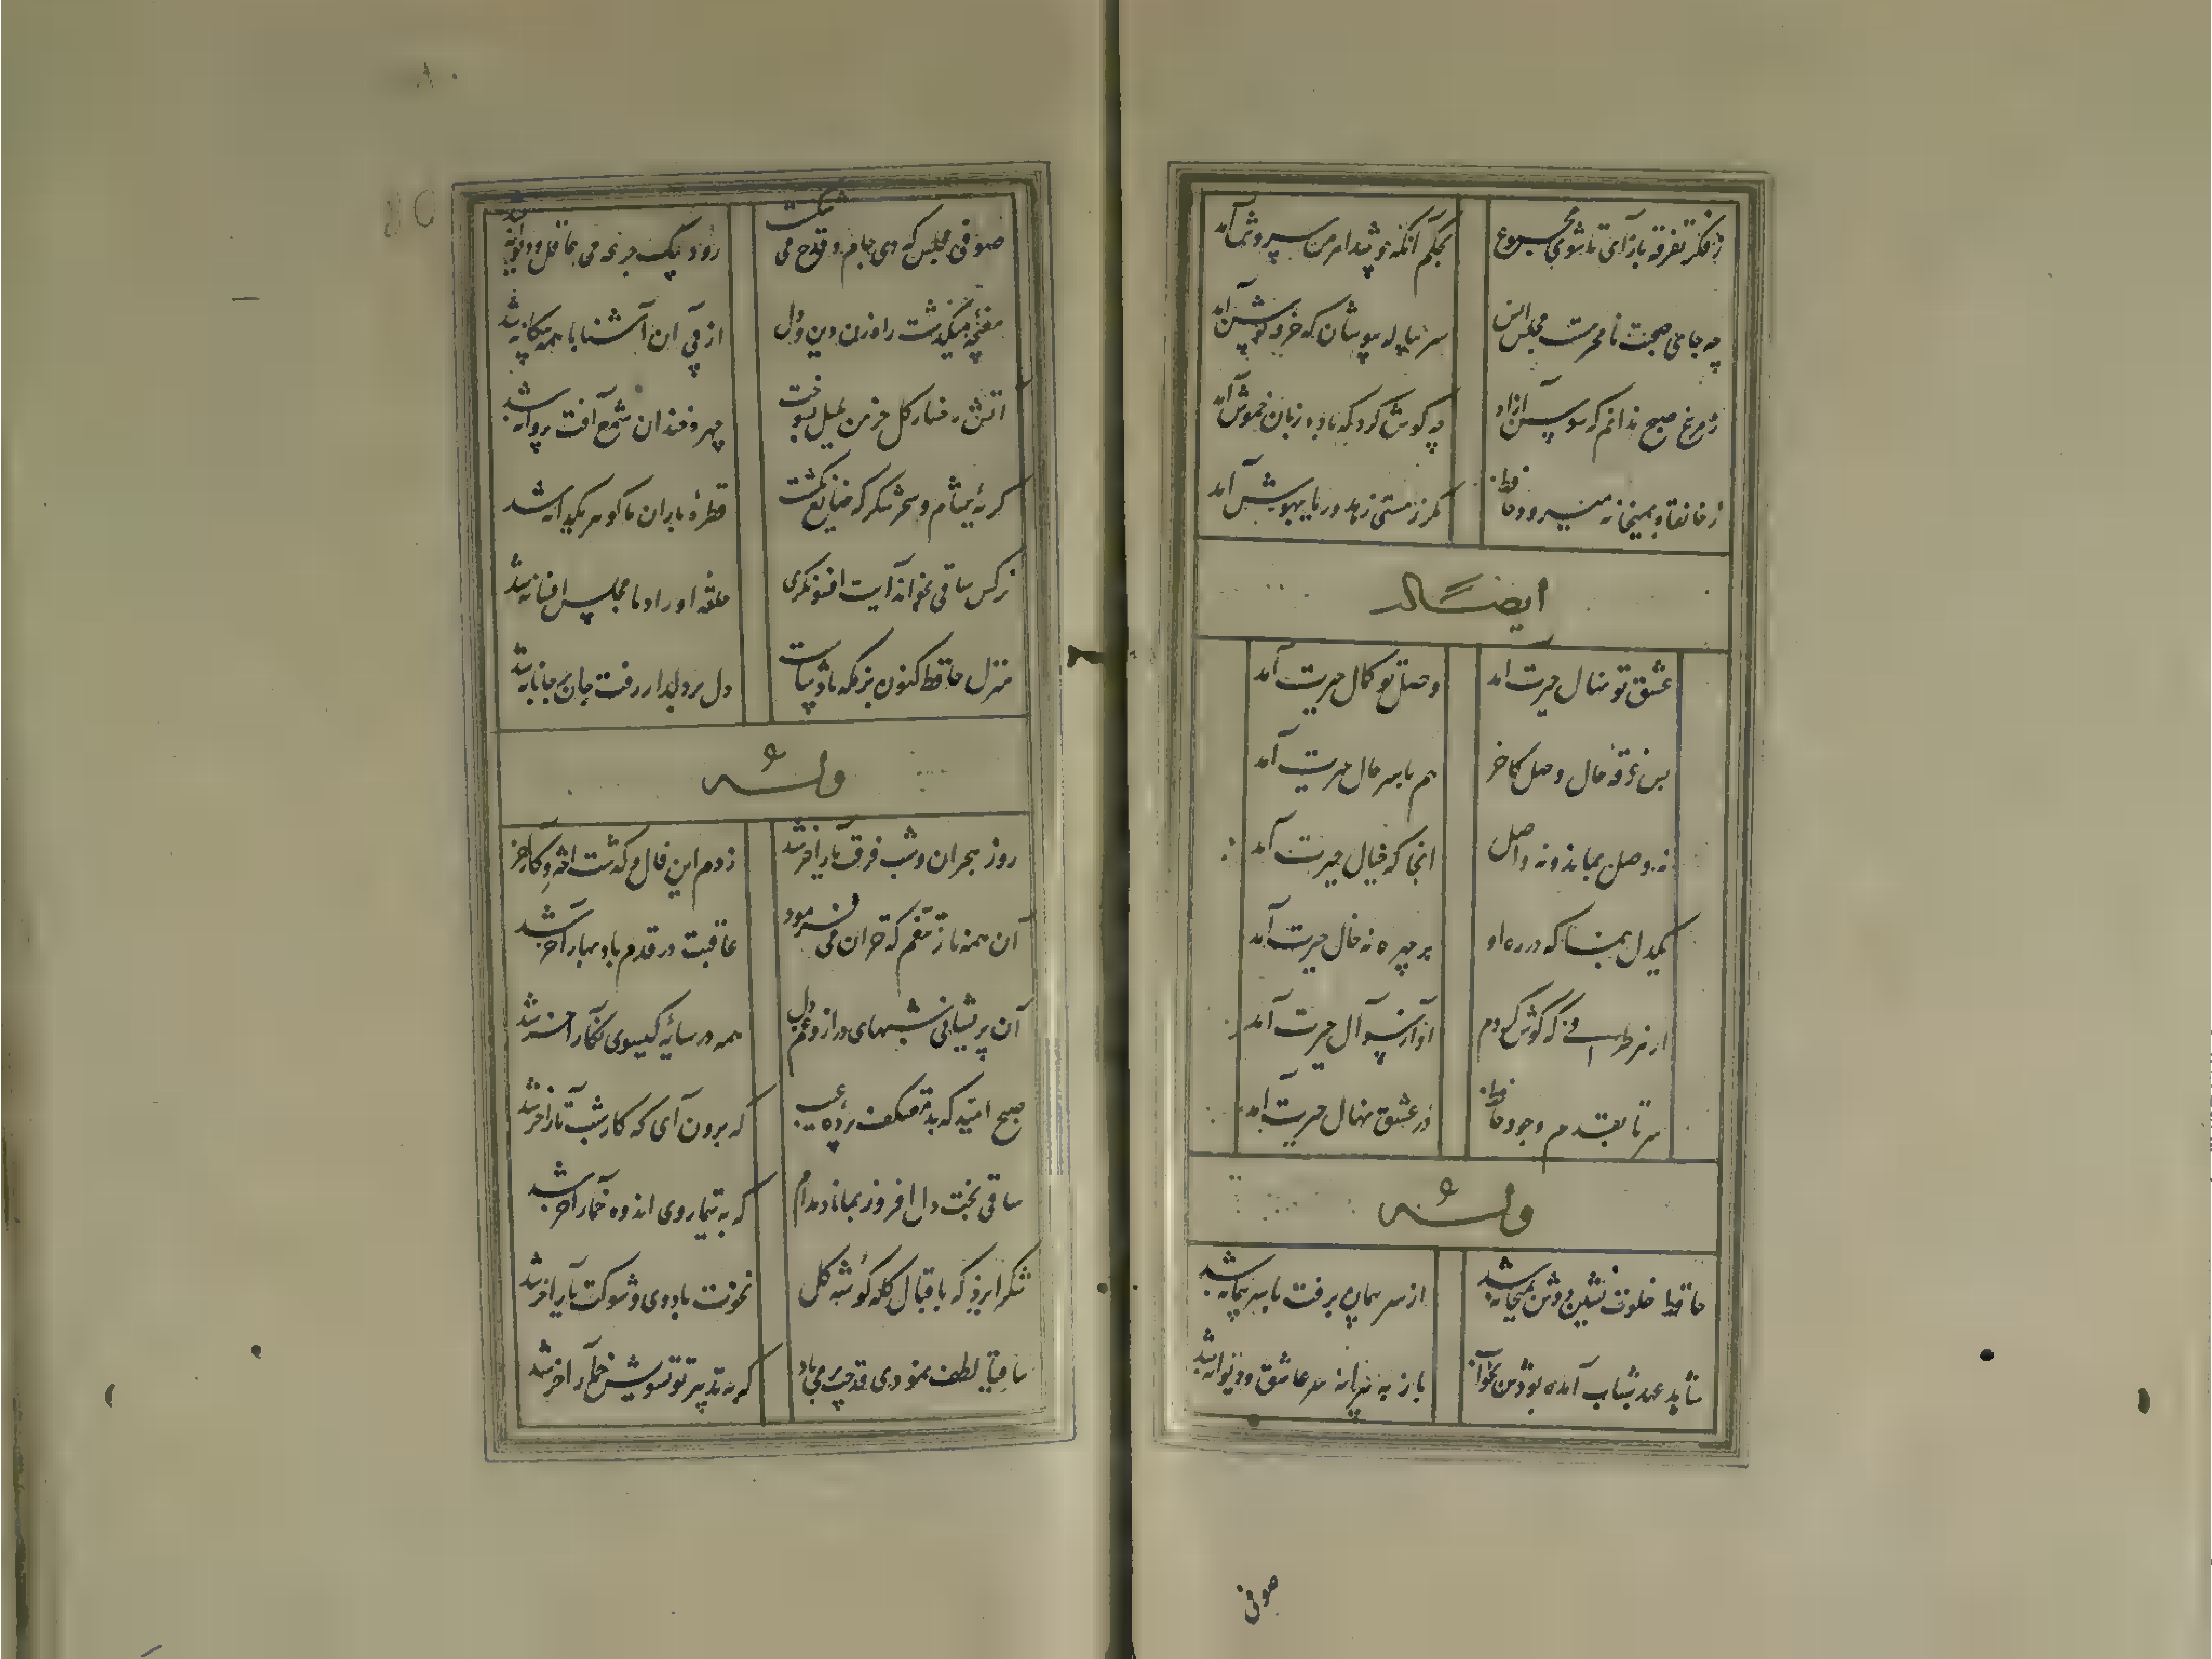 ز فکر تفرقه بازآی تا شوی مجموع بحکم آنکه چو شد اهرمن سروش آمد
چه جای صحبت نامحرمست مجلس انس سر پیاله بپوشان که خرقه پوش آمد
ز مرغ صبح ندانم که سوسن ازاد چه کوش کرد که با ده زبان خموش آمد
ز خانقاه بمیخانه میرود حافظ مکر ز مستی زهد و ریا بهوش آمد
ایضاله
عشق تو نهال حیرت امد وصل تو کمال حیرت آمد
بس غرقه حال وصل کاخر هم با سر حال حیرت آمد
نه وصل بماند و نه واصل انجا که خیال حیرت آمد
یکدل بنما که در ره او بر چهره نه خال حیرت آمد
از هر طرفی که کوش کردم آواز سوآل حیرت آمد
سر تا بقدم وجود حافظ در عشق نهال حیرت آمد
وله
حافظ خلوت نشین دوش بمیخانه شد از سر پیمان برفت با سر پیمانه شد
شاهد عهد شباب آمده بودش بخواب باز به پیرانه سر عاشق و دیوانه شد
صوفی
صوفی مجلس که دی جام و قدح می شکست دوش بیک جرعه می عاقل و فرزانه شد
مغبچه میکذشت راه زن دین و دل از پی آن آشنا با همه بیکانه شد
اتش رخسار کل خرمن بلبل بسوخت چهره خندان شمع آفت پروانه شد
کریهٔ شام و سحر شکر که ضایع نکشت قطرهٔ باران ما کوهر یکدانه شد
نرکس ساقی بخواند آیت افسونکری حلقه اوراد ما مجلس افسانه شد
منزل حافظ کنون بزمکه پادشاست دل بر دلدار رفت جان بر جانانه شد
وله
روز هجران و شب فرقت یار آخر شد زدم این فال و کذشت اختر و کار آخر شد
آن همه ناز و تنعم که خزان می فرمود عاقبت در قدم باد بهار آخر شد
آن پریشانی شبهای دراز و غم دل همه در سایهٔ کیسوی نکار آخر شد
صبح امید که بد معتکف پرده غیب کو برون آی که کار شب تار آخر شد
ساقی بخت دل افروز بماناد مدام که به تیمار وی اندوه خمار آخر شد
شکر ایزد که باقبال کله کوشه کل نخوت باد دی و شوکت خار آخر شد
ساقیا لطف نمودی قدحت پر می باد که به تدبیر تو تشویش خمار آخر شد